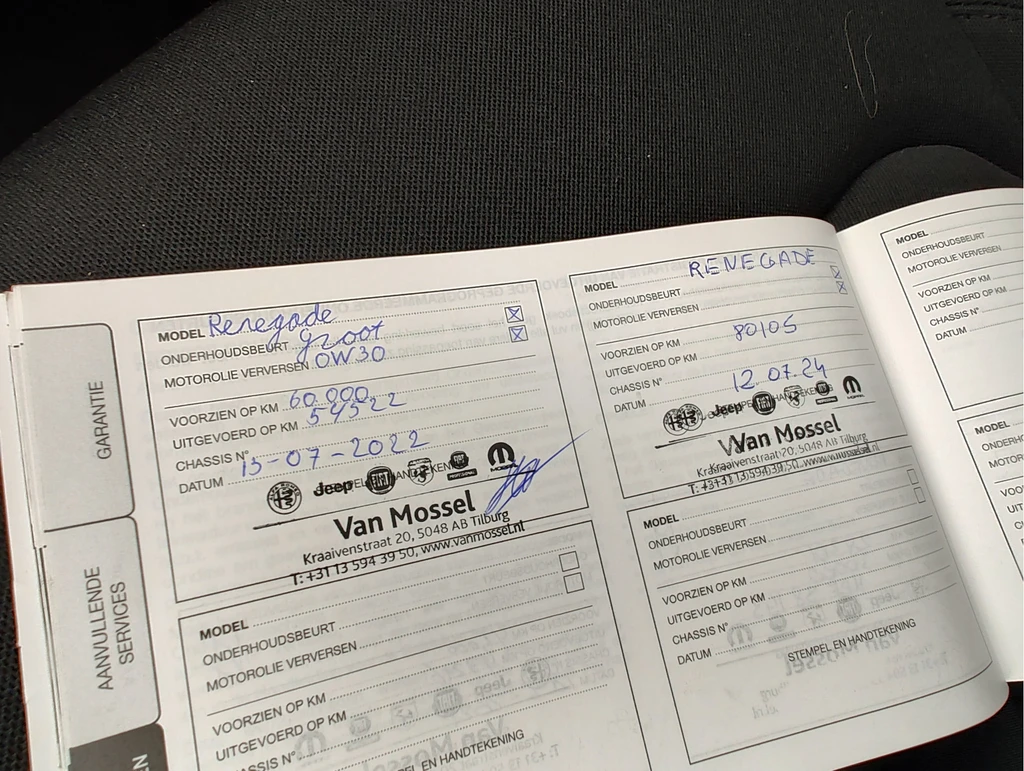 GARANTIE
AANVULLENDE
SERVICES
MODEL Renegade
ONDERHOUDSBEURT groot
MOTOROLIE VERVERSEN 0W30
VOORZIEN OP KM 60.000
UITGEVOERD OP KM 54522
CHASSIS N°
DATUM 13-07-2022
Jeep
FIAT
Van Mossel
Kraaivenstraat 20, 5048 AB Tilburg
T: +31 13 594 39 50, www.vanmossel.nl
MODEL
ONDERHOUDSBEURT
MOTOROLIE VERVERSEN
VOORZIEN OP KM
UITGEVOERD OP KM
CHASSIS N°
EN HANDTEKENING
MODEL RENEGADE
ONDERHOUDSBEURT
MOTOROLIE VERVERSEN
VOORZIEN OP KM
UITGEVOERD OP KM 80105
CHASSIS N°
DATUM 12.07.24
Jeep
FIAT
Van Mossel
Kraaivenstraat 20, 5048 AB Tilburg
T: +31 13 594 39 50, www.vanmossel.nl
MODEL
ONDERHOUDSBEURT
MOTOROLIE VERVERSEN
VOORZIEN OP KM
UITGEVOERD OP KM
CHASSIS N°
DATUM
STEMPEL EN HANDTEKENING
MODEL
ONDERHOUDSBEURT
MOTOROLIE VERVERSEN
VOORZIEN OP KM
UITGEVOERD OP KM
CHASSIS N°
DATUM
MODEL